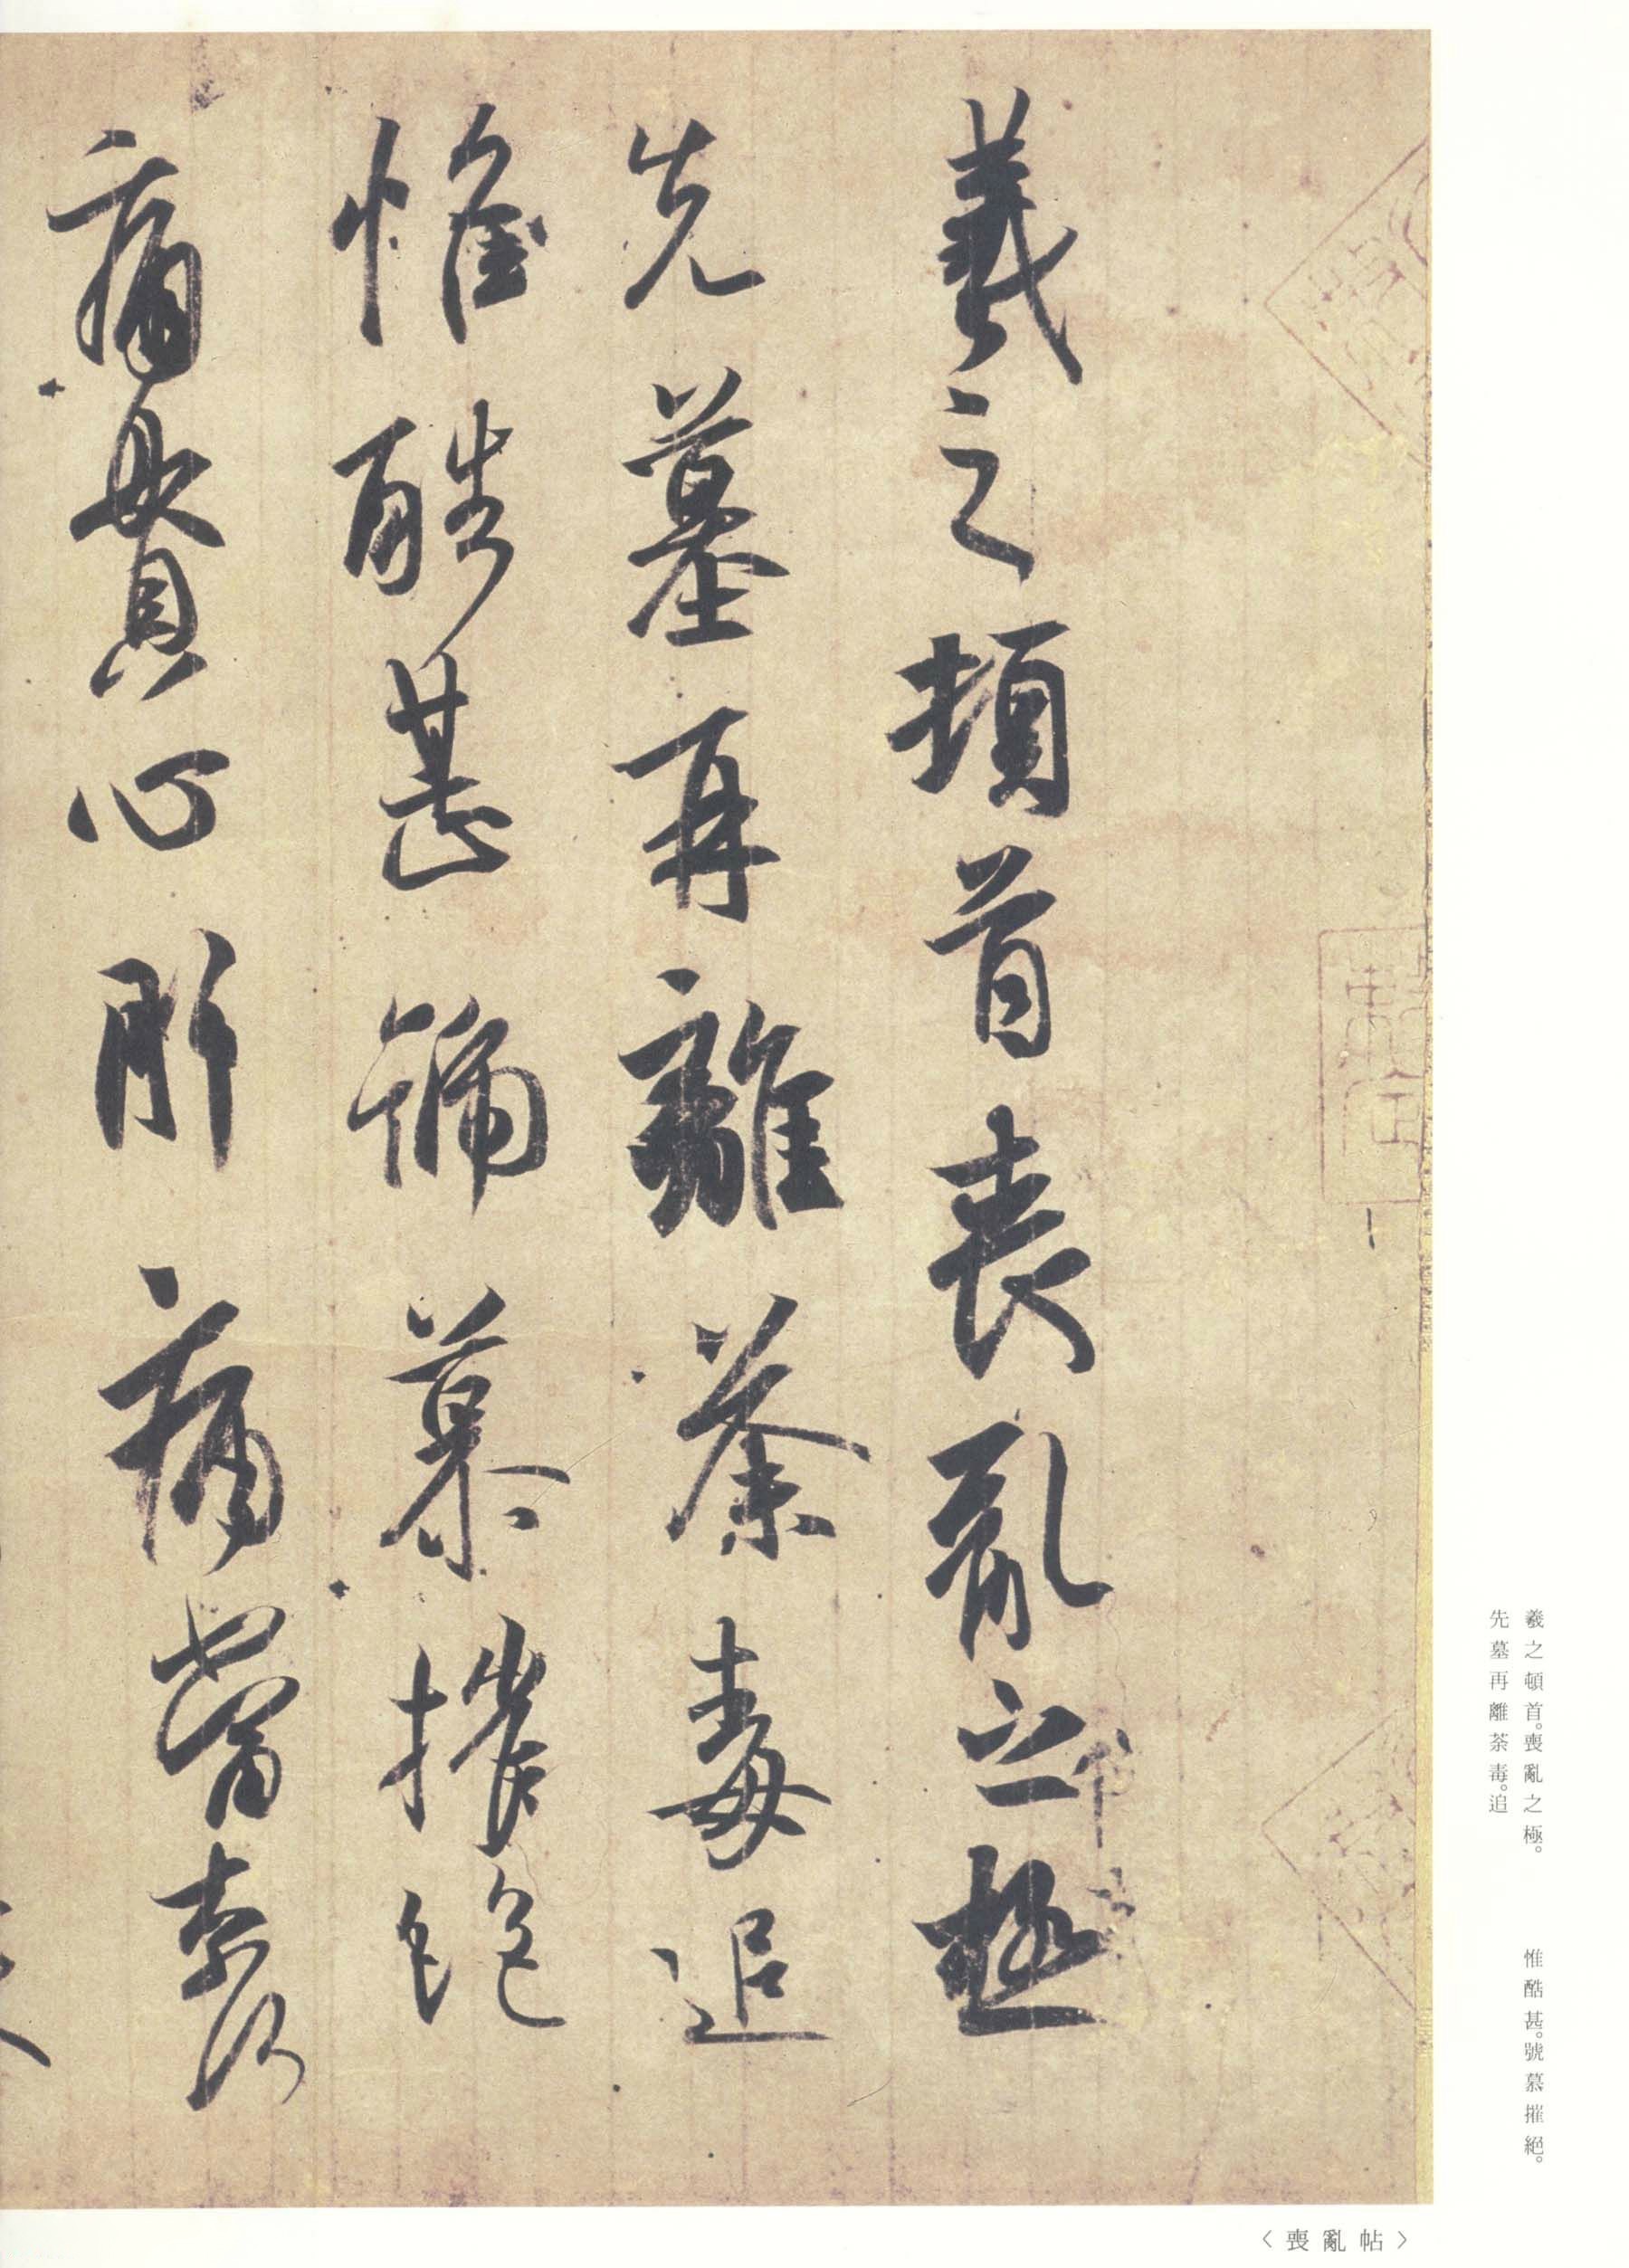 羲之頓首喪亂之極
先墓再離荼毒追
惟酷甚號慕摧絶
痛貫心肝痛當奈何
羲之頓首。喪亂之極。
先墓再離荼毒。追
惟酷甚。號慕摧絕。
〈喪亂帖〉